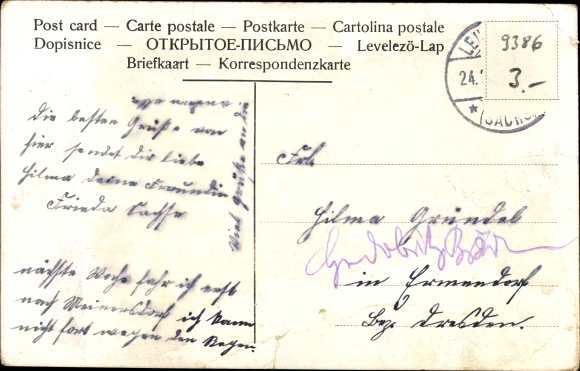 Post card — Carte postale — Postkarte — Cartolina postale
Dopisnice — ОТКРЫТОЕ-ПИСЬМО — Levelezö-Lap
Briefkaart — Korrespondenzkarte
LEI
24.
* (SACHS.
9386
3.-
die besten Grüße von
hier sendet dir liebe
Hilma deine Freundin
Frieda Sachse
Viel Grüße an die
nächste Woche fahr ich erst
nach Meinersdorf ich kann
nicht fort wegen den Regen.
Frl.
Hilma Gründel
in Ermendorf
Bez. Dresden.